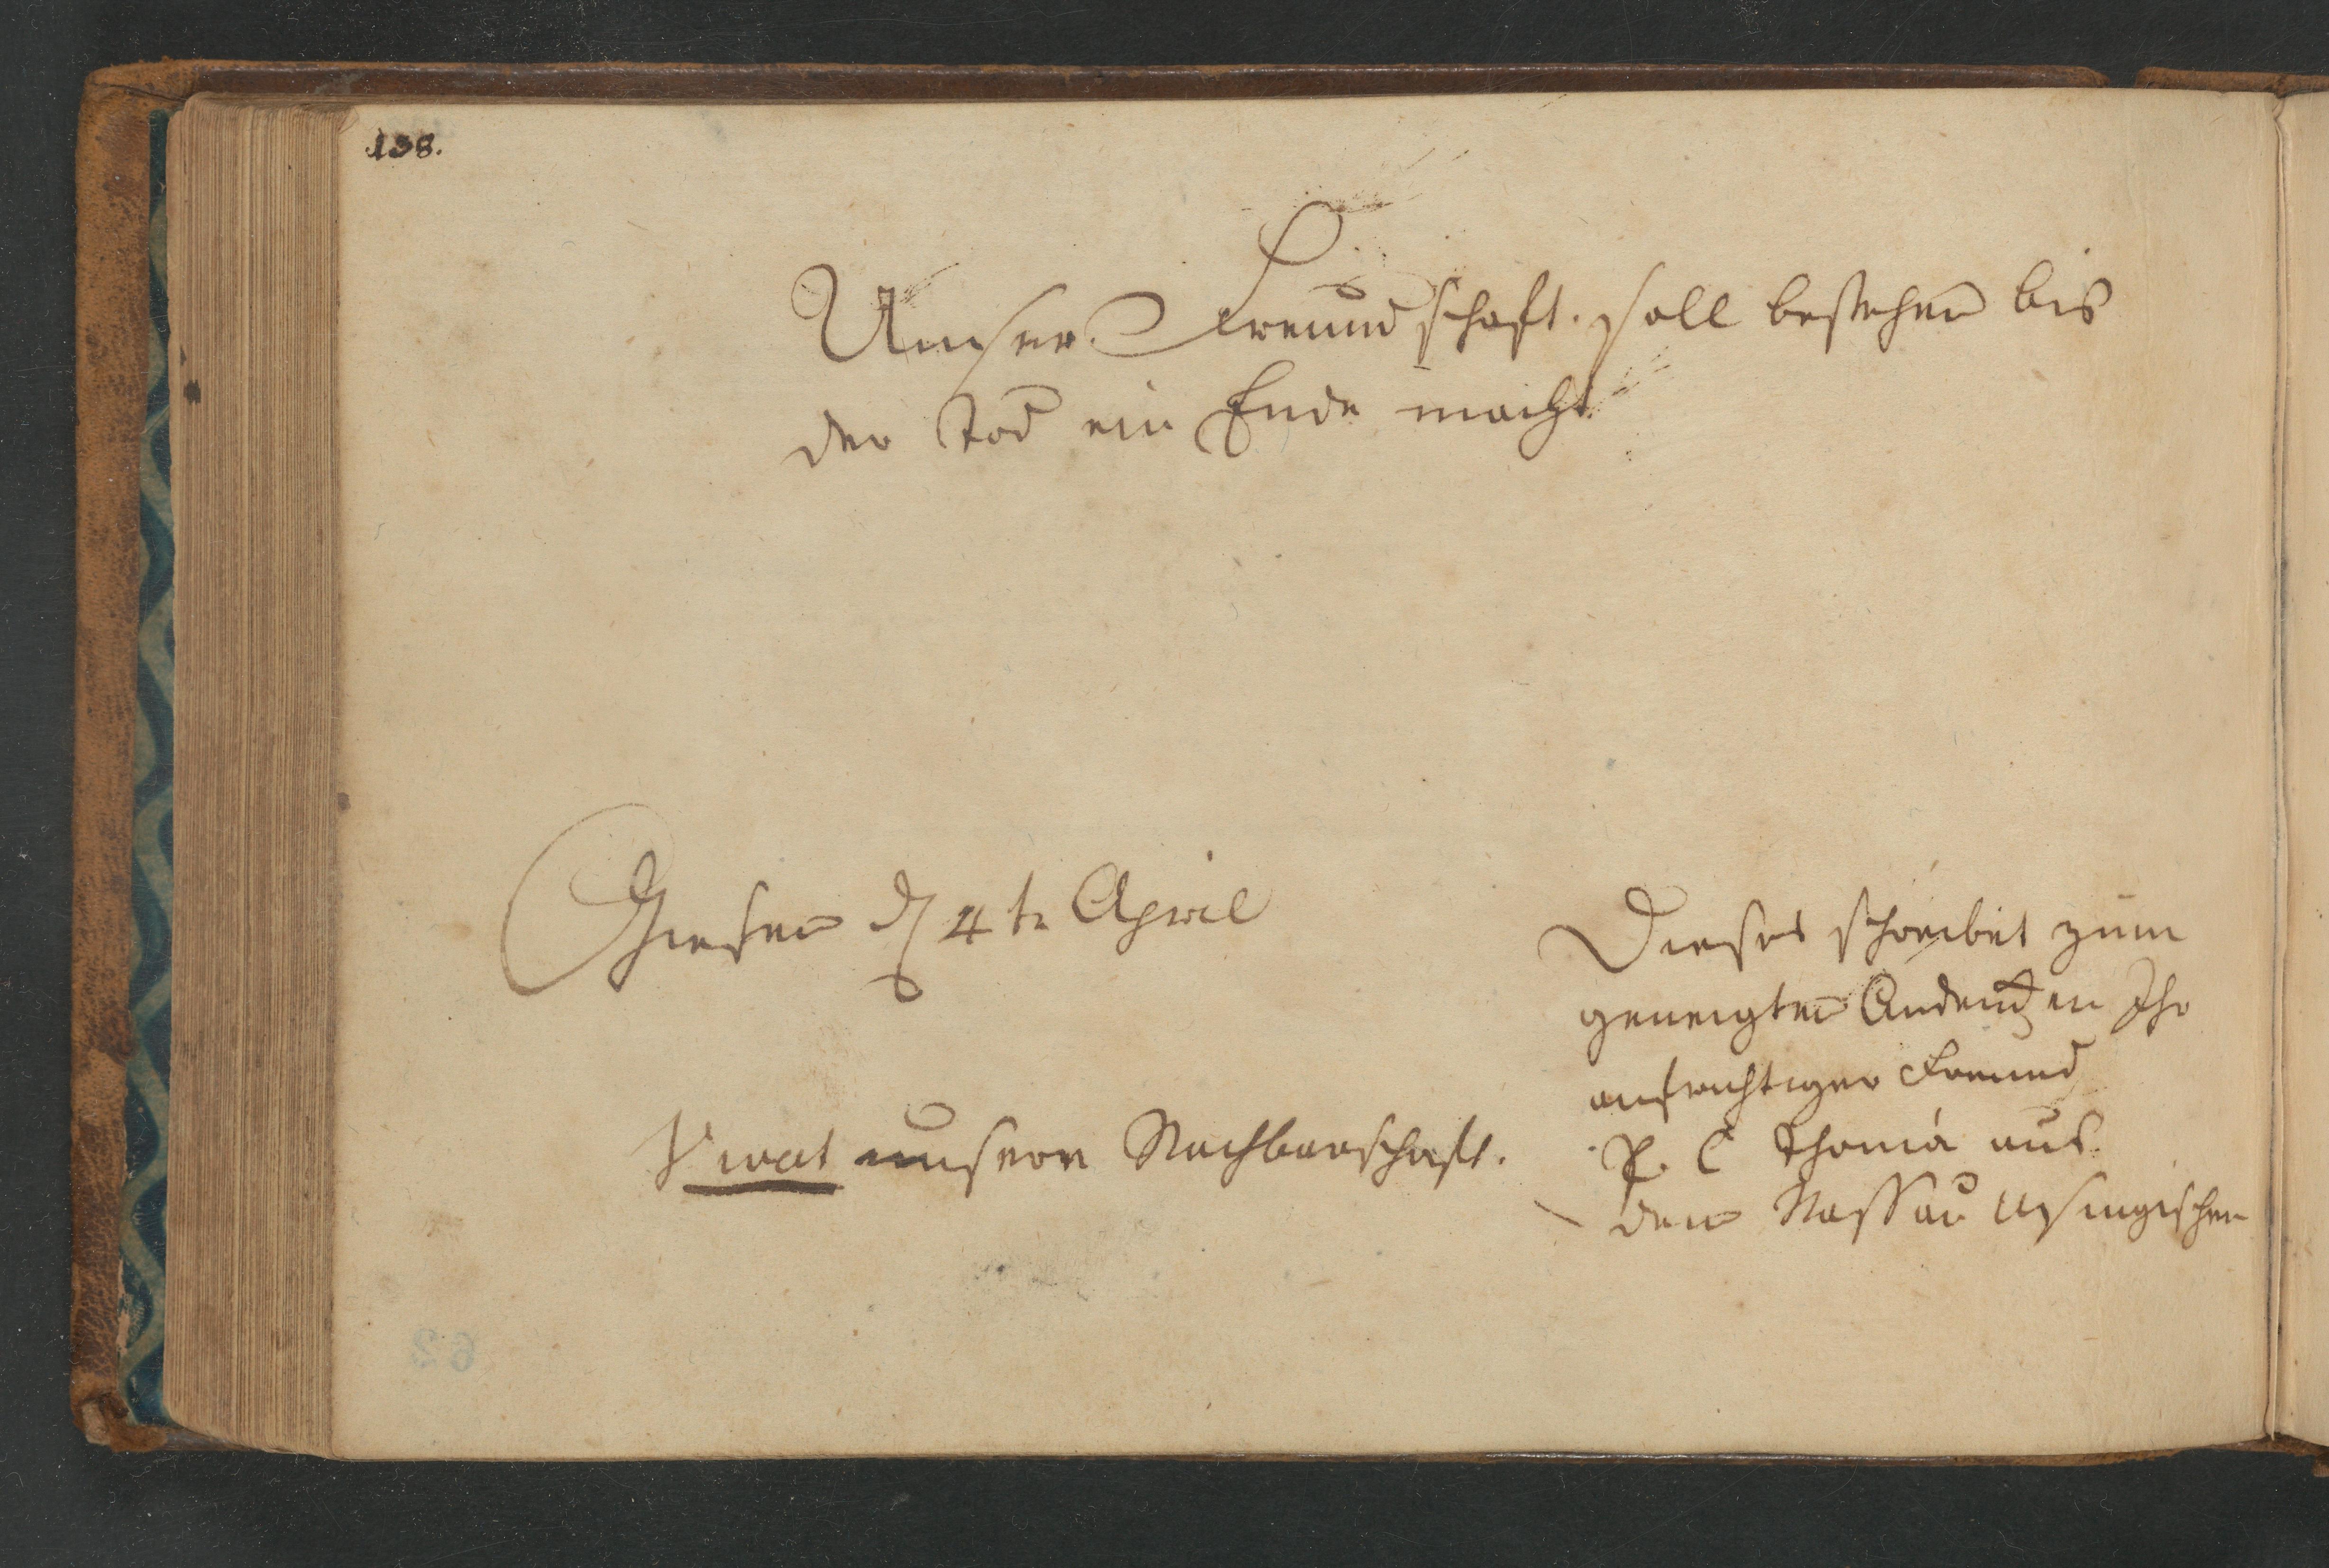 138.
Unser Freundschaft soll bestehen bis
der Tod ein Ende macht
Giesen d 4te April
Vivat unsere Nachbarschaft.
Dieses schreibet zum
geneigten Andencken Ihr
aufrichtiger Freund
P. C Thomä aus
dem Nassau Usingischen
62